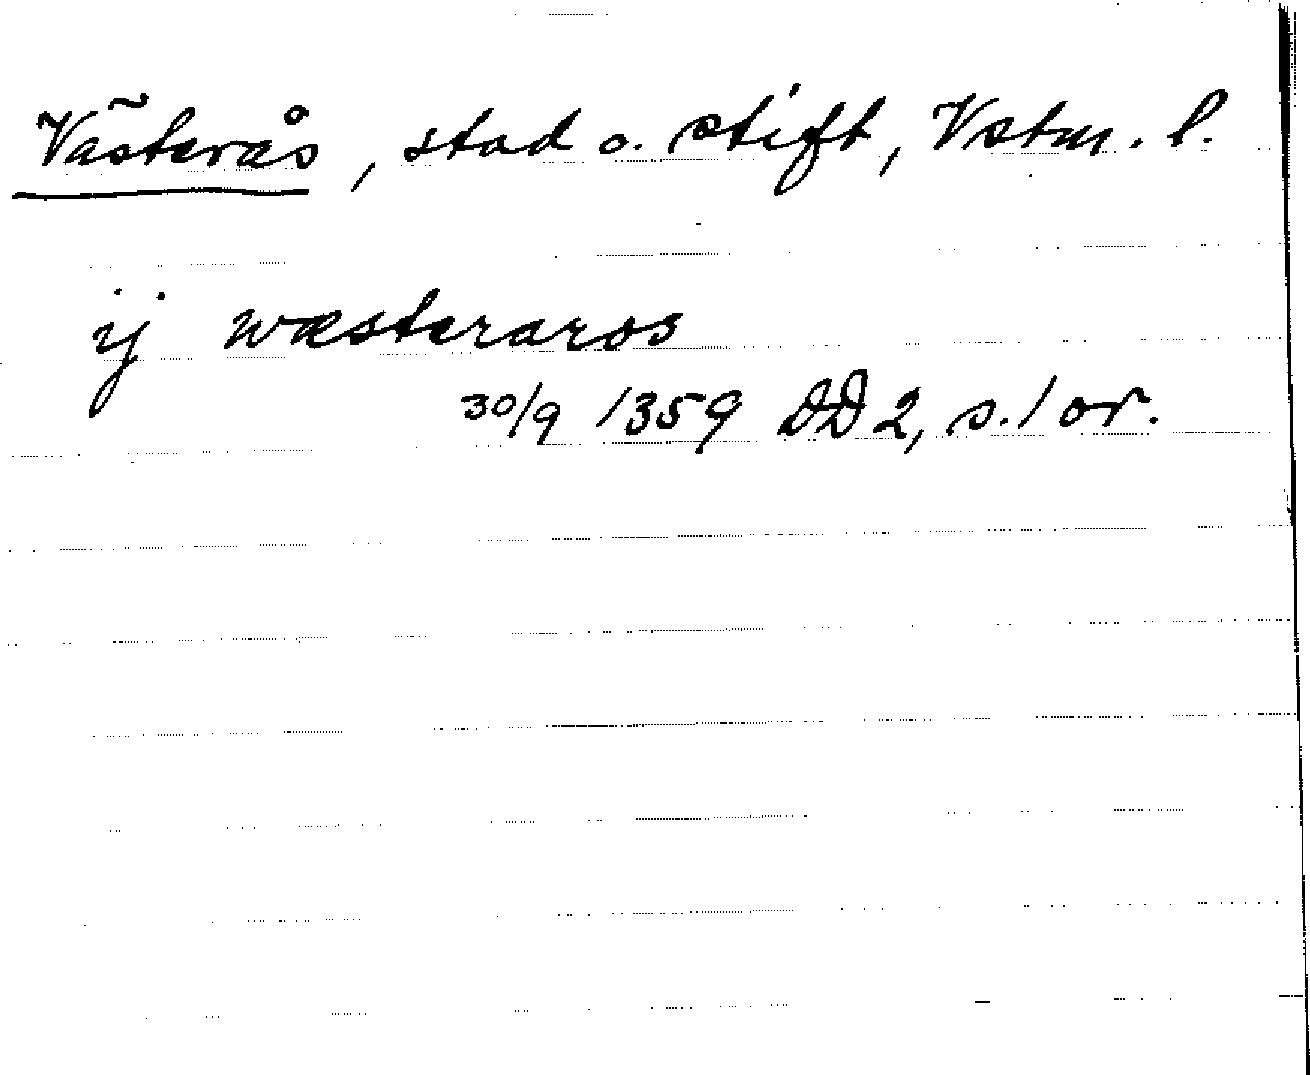 Västerås, stad o. stift, Vstm. l.
ij wæsteraros
30/9 1359 DD 2, s. 1 or.